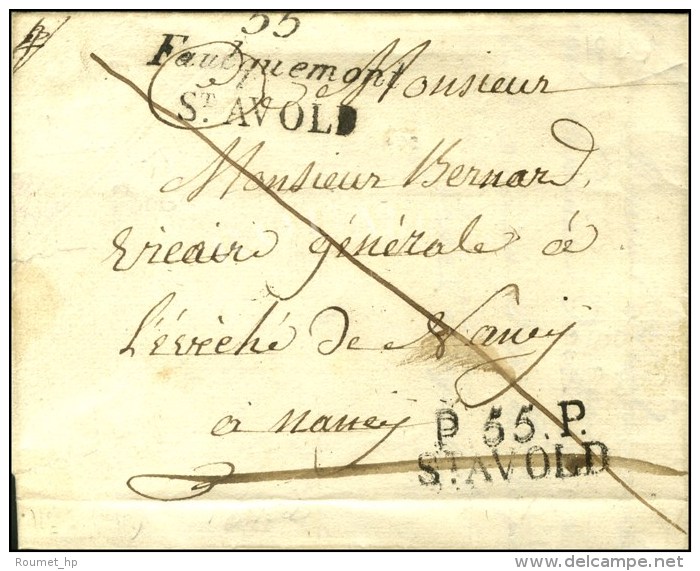 55
Faulquemont
ST. AVOLD
Monsieur
Monsieur Bernard,
Vicaire générale à
l'évêché de Nancy
à nancy
P. 55. P.
ST. AVOLD
Roumet_hp
© delcampe.net